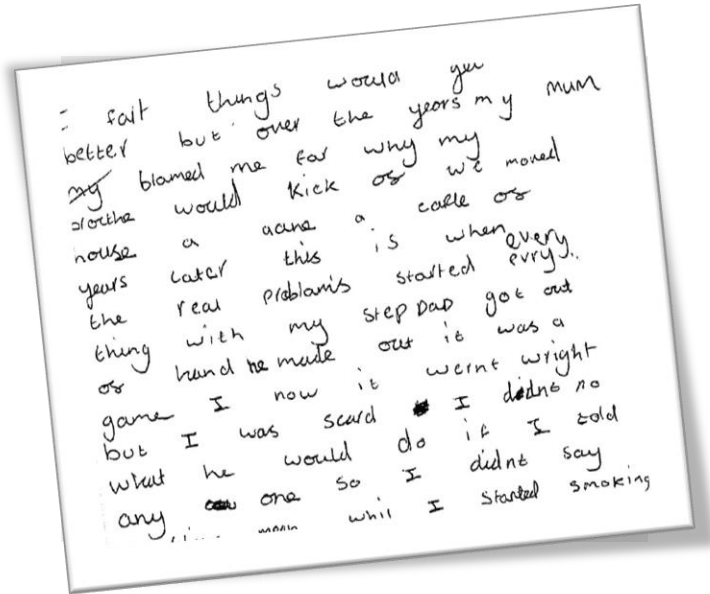 I fait things would ger
better but over the years my mum
my blamed me for why my
brothe would kick of we moved
house a gane a calle of
years later this is when every
the real problams started evry
thing with my step Dad got out
of hand he made out it was a
game I now it wernt wright
but I was scard I didnt no
what he would do if I told
any one so I didnt say
whil I started smoking